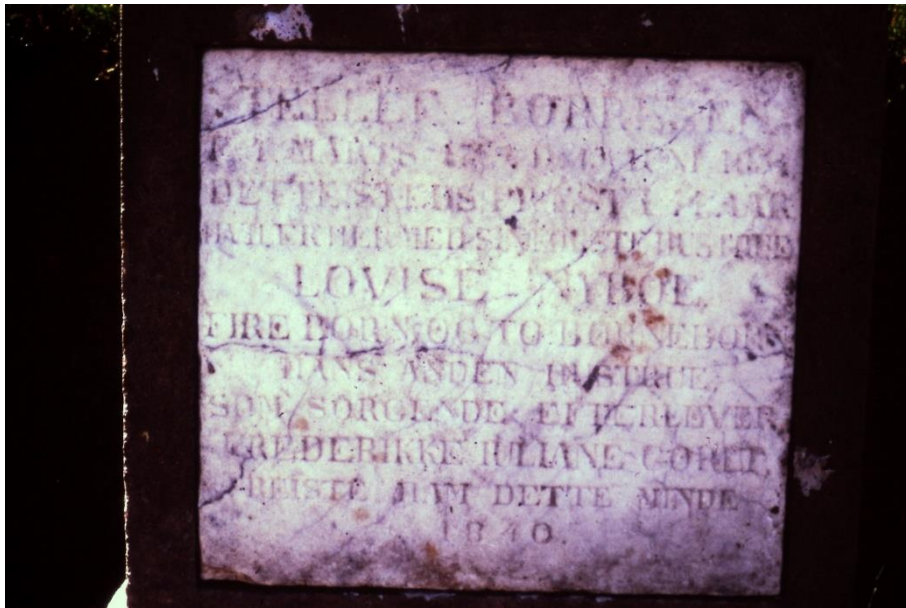 BORRESEN,
MARTS
DETTE STEDS PRÆST I AAR
HVILER HER MED SIN FØRSTE HUSTRUE
LOVISE NYBOE,
FIRE BØRN OG TO BØRNEBØRN
HANS ANDEN HUSTRUE,
SOM SØRGENDE EFTERLEVER
FREDERIKKE IULIANE
REISTE HAM DETTE MINDE
1840.